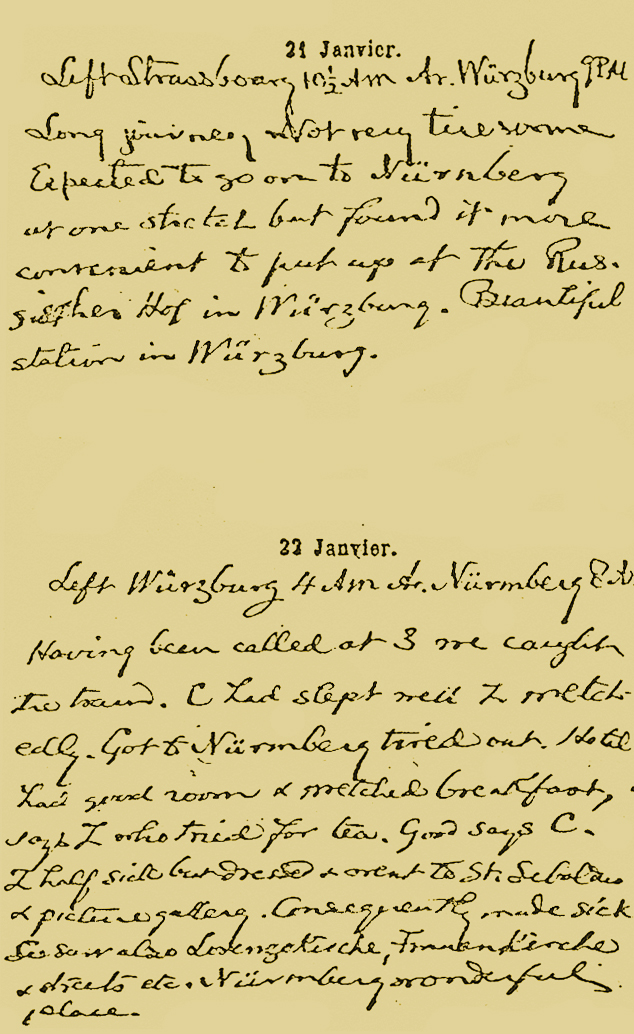 21 Janvier.
Left Strassbourg 10½ AM Ar. Würzburg 9PM
Long journey Not very tiresome
Expected to go on to Nürnberg
at one stretch but found it more
convenient to put up at the Rus-
sischer Hof in Würzburg. Beautiful
station in Würzburg.
22 Janvier.
Left Würzburg 4 AM Ar. Nürmberg 8 A
Having been called at 3 we caught
the train. C had slept well I wretch-
edly. Got to Nürmberg tired out. Hotel
had good room & wretched breakfast,
says I who tried for tea. Good says C.
I half sick but dressed & went to St. Sebaldus
& picture gallery. Consequently made sick
saw also Lorenzokirche, Frauenkirche
& streets etc. Nürmberg wonderful
place.